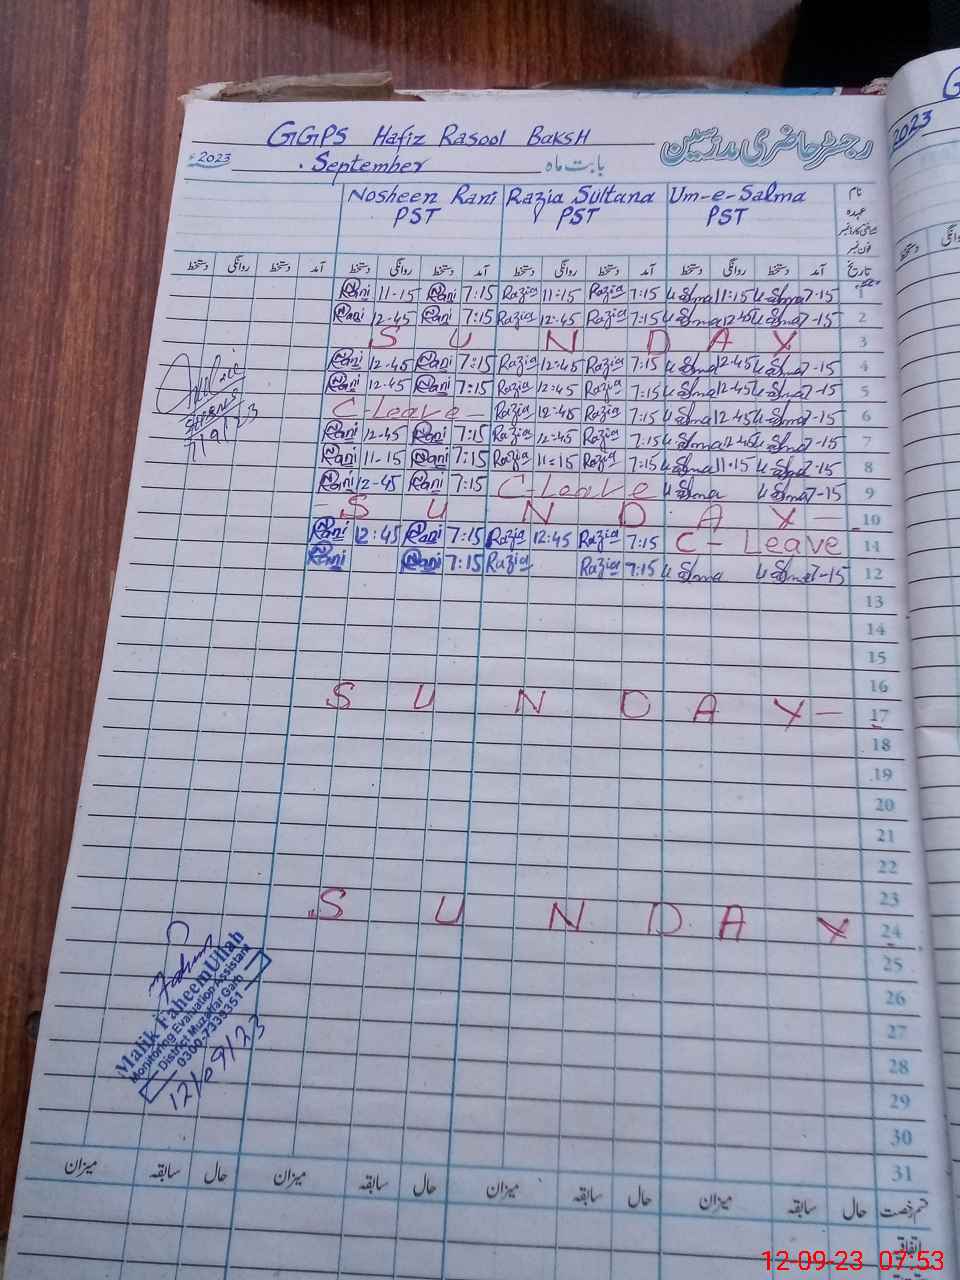 GGPS Hafiz Rasool Baksh
رجسٹر حاضری مدرسین
2023
September بابت ماہ
2023
Nosheen Rani Razia Sultana Um-e-Salma نام
PST PST PST عہدہ
دستخط روانگی دستخط آمد دستخط روانگی دستخط آمد دستخط روانگی دستخط آمد دستخط روانگی دستخط آمد تاریخ
Rani 11-15 Rani 7:15 Razia 11:15 Razia 7:15 U Salma 11:15 U Salma 7-15 1
Rani 12-45 Rani 7:15 Razia 12:45 Razia 7:15 U Salma 12-45 U Salma 7-15 2
S U N D A Y 3
Rani 12-45 Rani 7:15 Razia 12-45 Razia 7:15 U Salma 12-45 U Salma 7-15 4
Rani 12-45 Rani 7:15 Razia 12:45 Razia 7:15 U Salma 12-45 U Salma 7-15 5
C-Leave - Razia 12-45 Razia 7:15 U Salma 12-45 U Salma 7-15 6
Rani 12-45 Rani 7:15 Razia 12-45 Razia 7:15 U Salma 12-45 U Salma 7-15 7
Rani 11-15 Rani 7:15 Razia 11:15 Razia 7:15 U Salma 11-15 U Salma 7-15 8
Rani 12-45 Rani 7:15 C-Leave U Salma U Salma 7-15 9
- S U N D A Y - 10
Rani 12:45 Rani 7:15 Razia 12:45 Razia 7:15 C- Leave 11
Rani Rani 7:15 Razia Razia 7:15 U Salma U Salma 7-15 12
7/9/23
13
14
15
16
S U N D A Y - 17
18
19
20
21
22
23
S U N D A Y 24
25
26
27
28
29
30
31
Malik FaheemUllah
Monitoring Evaluation Assistant
District Muzaffar Garh
0300-7330351
12/09/23
میزان سابقہ حال میزان سابقہ حال میزان سابقہ حال میزان سابقہ حال قسم رخصت
اتفاقیہ
12-09-23 07:53